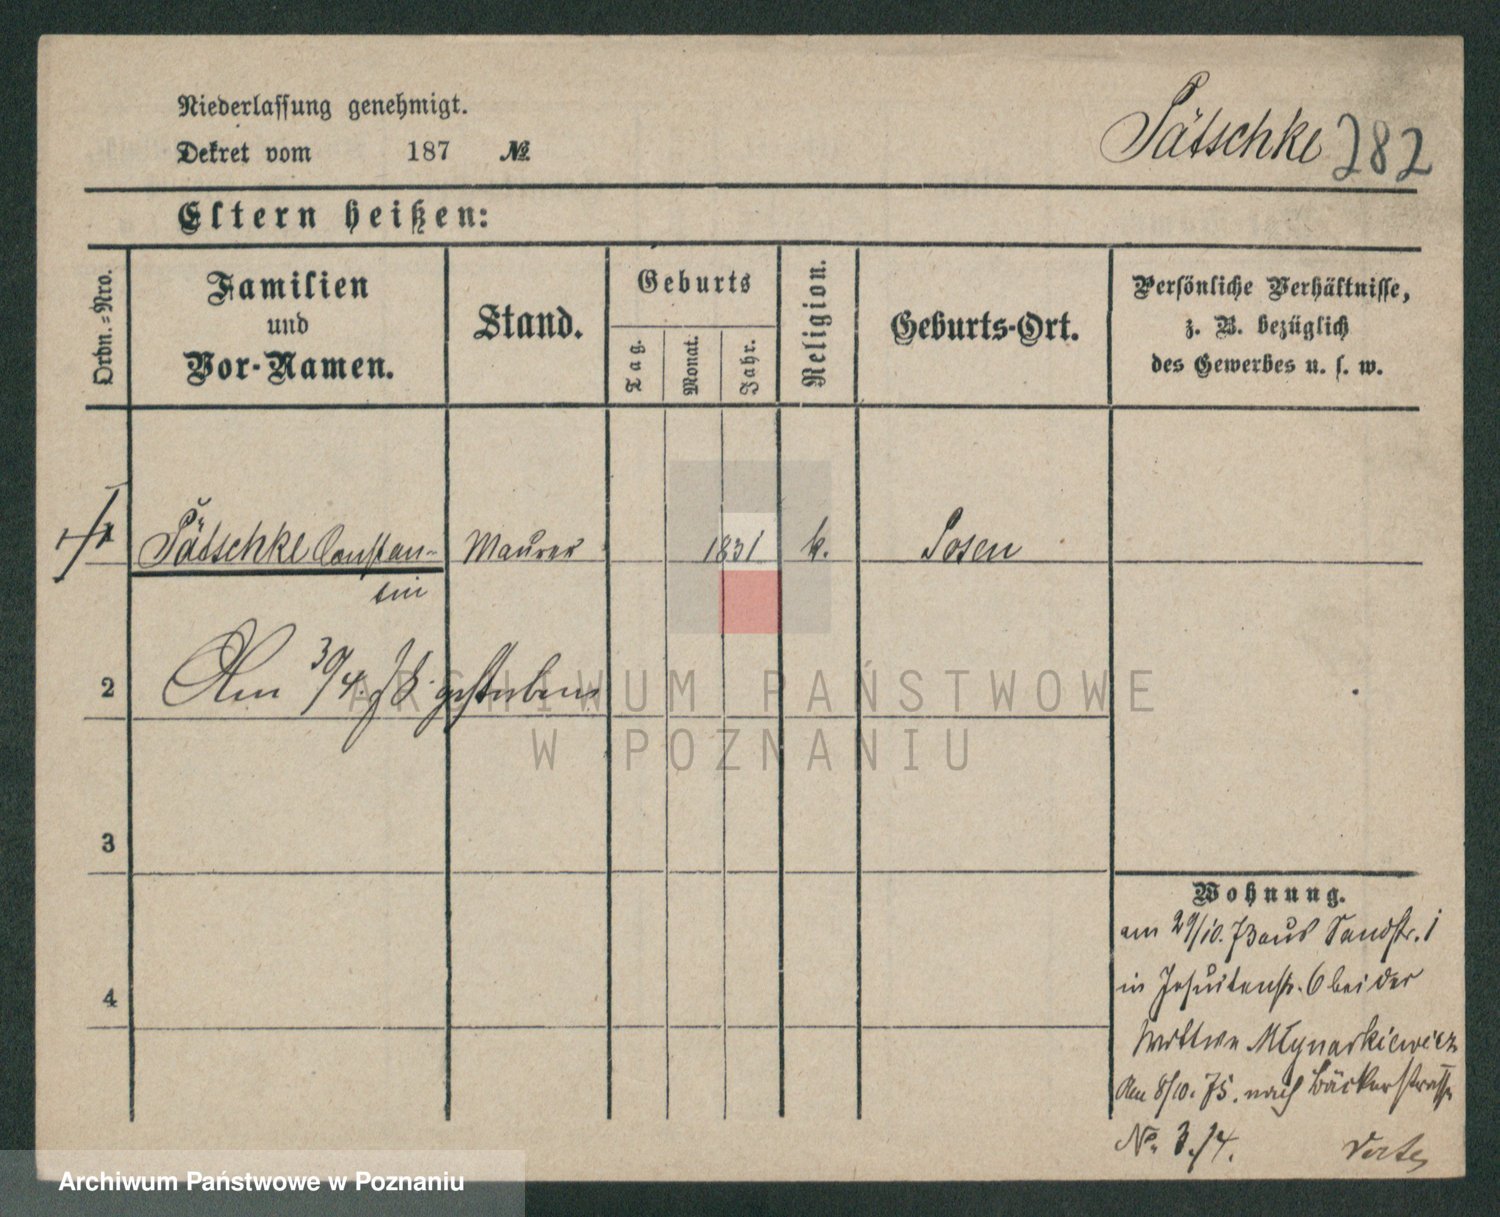 Niederlassung genehmigt.
Dekret vom 187 №
Pätschke 282
Eltern heißen:
Ordn.-Nro.
Familien
und
Vor-Namen.
Stand.
Geburts
Tag.
Monat.
Jahr.
Religion.
Geburts-Ort.
Persönliche Verhältnisse,
z. B. bezüglich
des Gewerbes u. s. w.
Pätschke Constan-
tin
Maurer
1831
k.
Posen
2
Am 30/4. 78. gestorben
3
4
Wohnung.
am 29/10. 73 aus Sandstr. 1
in Jesuitenstr. 6 bei der
Wittwe Młynarkiewicz
Am 8/10. 75. nach Bäckerstrasse
No. 3./4.
ARCHIWUM PAŃSTWOWE
W POZNANIU
Archiwum Państwowe w Poznaniu